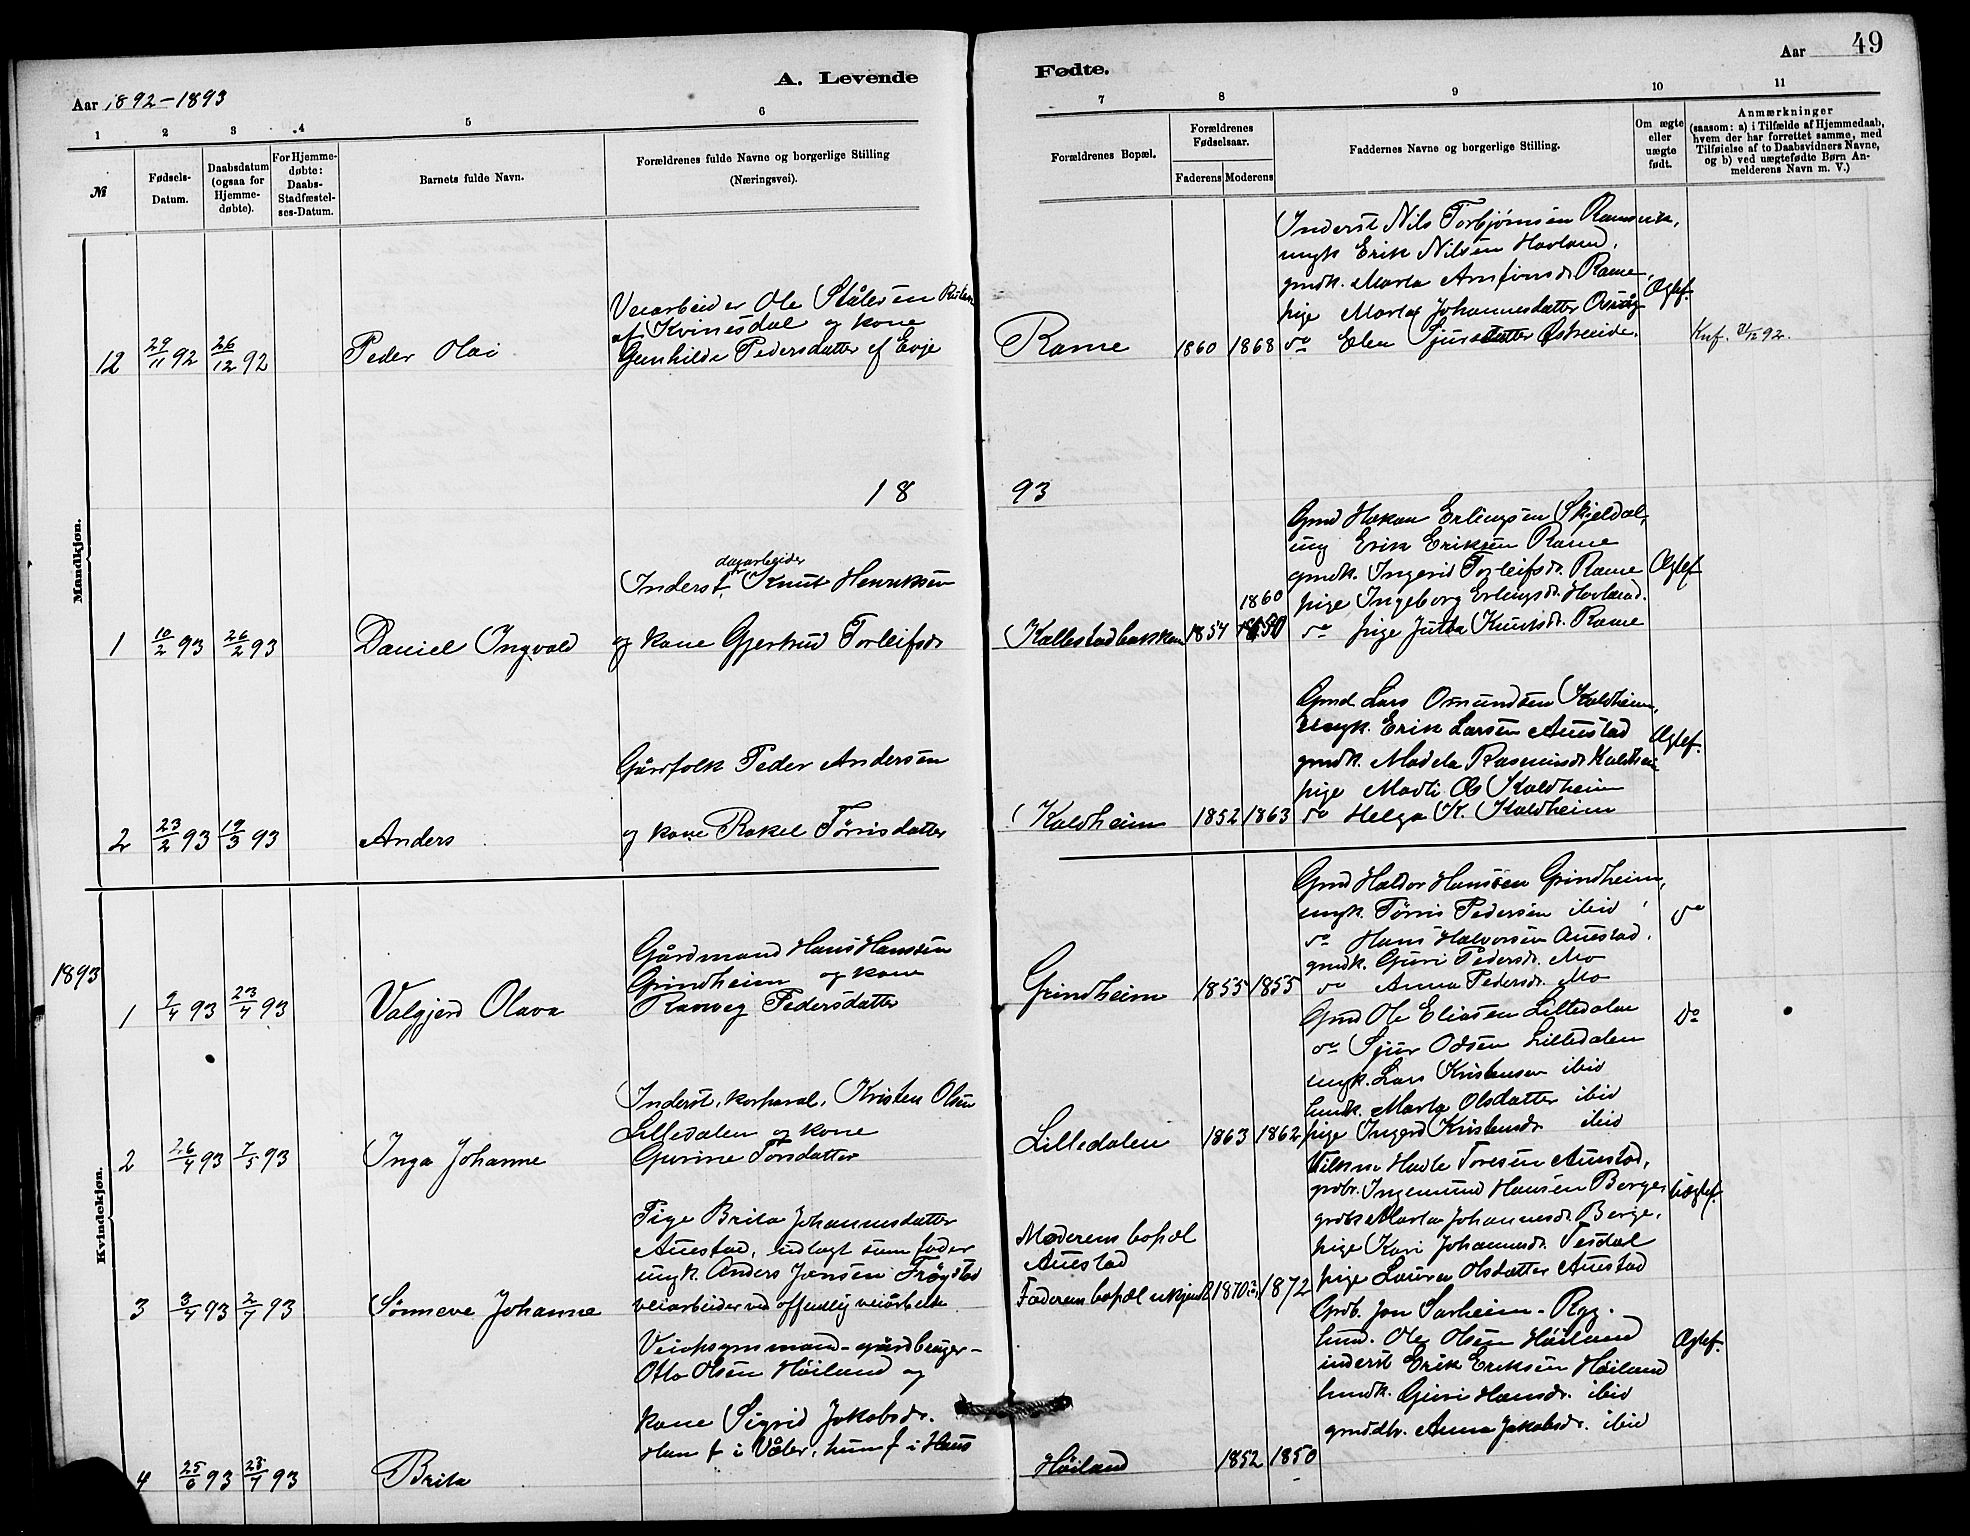 49
Aar 1892-1893
A. Levende
Fødte.
Aar
1 2 3 4 5 6 7 8 9 10 11
№
Fødsels-Datum.
Daabsdatum (ogsaa for Hjemme-døbte).
For Hjemme-døbte: Daabs-Stadfæstel-ses-Datum.
Barnets fulde Navn.
Forældrenes fulde Navne og borgerlige Stilling
(Næringsvei).
Forældrenes Bopæl.
Forældrenes Fødselsaar.
Faderens Moderens
Faddernes Navne og borgerlige Stilling.
Om ægte eller uægte født.
Anmærkninger
(saasom: a) i Tilfælde af Hjemmedaab,
hvem der har forrettet samme, med
Tilføielse af to Daabsvidners Navne,
og b) ved uægtefødte Børn An-
melderens Navn m. V.)
Mandkjøn.
12 29/11 92 26/12 92 Peder Olai
Veiarbeider Ole Stålesen
af Kvinesdal og kone
Gunhilde Pedersdatter af Evje
Rame 1860 1868
Inderst Nils Torbjørnsen
ungk. Erik Nilsen Hovland.
gmdk. Marta Arnfinnsdr. Rame,
pige Marta Johannesdatter Osvåg
do Elen Sjursdatter Østreide.
Ægtef.
18 93
1 10/2 93 26/2 93 Daniel Ingvald
dagarbeider
Inderst, Knut Henriksen
og kone Gjertrud Torleifsdr
Kallestadbakken 1854 1860 1850
Gmd Hakon Erlingsen Skjeldal,
ung Erik Eriksen Rame
gmdk. Ingerid Torleifsdr. Rame
pige Ingeborg Erlingsdr. Hovland.
do pige Jutta Knutsdr. Rame
Ægtef
2 23/2 93 19/3 93 Anders
Gårdfolk Peder Andersen
og kone Rakel Tørrisdatter
Kaldheim 1852 1863
Gmd Lars Omundsen Kaldheim,
Ungk. Erik Larsen Auestad
gmdk. Madela Rasmusdr Kaldheim
pige Marti Os Kaldheim
do Helga K. Kaldheim
Ægtef.
1893
Kvindekjøn.
1 9/4 93 23/4 93 Valgjerd Olava
Gårdmand Hans Hansen
Grindheim og kone
Ranveg Pedersdatter
Grindheim 1855 1855
Gmd Haldor Hansen Grindheim,
ungk. Tørris Pedersen ibid
do Hans Halvorsen Auestad.
gmdk. Guri Pedersdr. Mo
do Anna Pedersdr. Mo
do
2 26/4 93 7/5 93 Inga Johanne
Inderst, korporal, Kristen Olsen
Lilledalen og kone
Gurine Torsdatter
Lilledalen 1863 1862
Gmd Ole Eliasen Lilledalen
do Sjur Odsen Lilledalen
ungk. Lars Kristensen ibid
husmk. Marta Olsdatter ibid
pige Ingerd Kristensdr ibid
Do
3 3/4 93 2/7 93 Sønneve Johanne
Pige Brita Johannesdatter
Auestad, udlagt som fader
ungk. Anders Jensen Frøystad
veiarbeider ved offentlig veiarbeide.
Moderens bopæl
Auestad
Faderens bopæl ukjendt 1870 1872
Havle Toresen Auestad,
grdbr. Ingemund Hansen Berge,
grdbk Marta Johannesdr. Berge,
pige Kari Johannesdr. Tesdal
pige Laura Olsdatter Auestad
Uægtef.
4 25/6 93 23/7 93 Brita
Veiopsynsmand - gårdbruger -
Otto Olsen Høiland og
kone Sigrid Jakobsdr.
Han f i Våler, hun f i Haus
Høiland 1852 1850
Grdb. Jon Sarheim - Ryg.
husmd. Ole Olsen Høiland
inderst Erik Eriksen Høiland
husmdk. Guri Hansdr. ibid
gmddtr. Anna Jakobsdr. ibid
Ægtef.